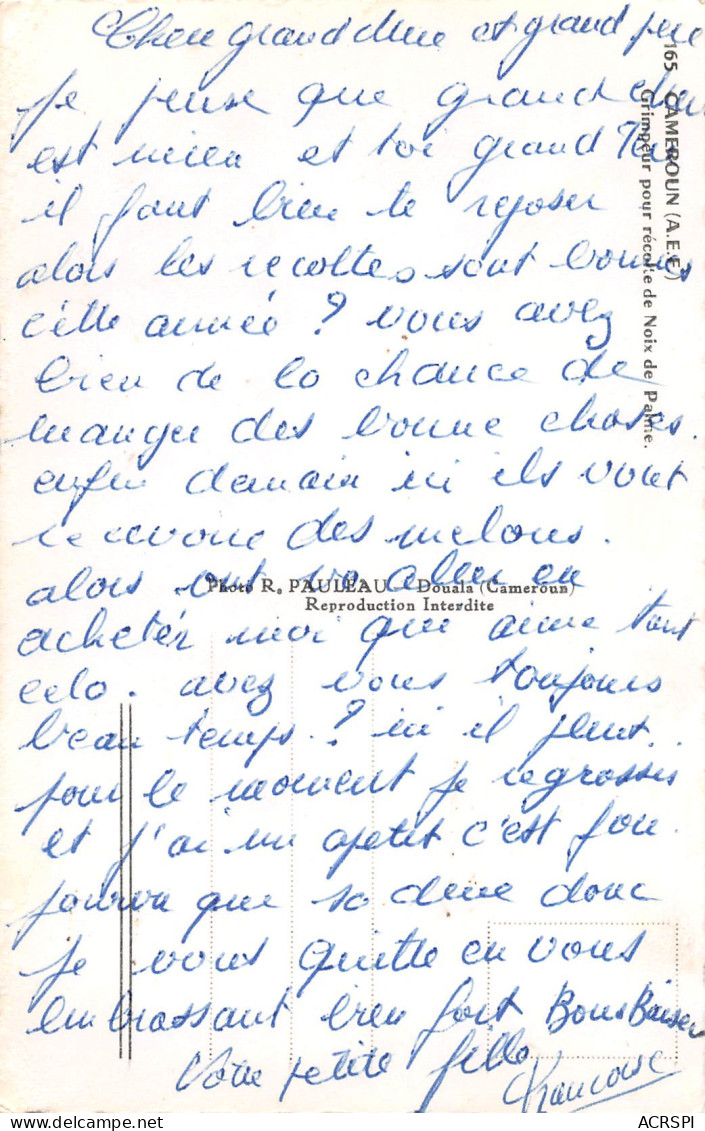 Chere grand Mere et grand pere
Je pense que grand Mere
est mieu et toi grand Pere
il faut bien te reposer
alors les recoltes sont bonnes
cette année ? vous avez
bien de la chance de
manger des bonne choses.
enfin demain ici ils vont
recevoire des melons.
alors vont aller en
acheter moi que aime tant
cela. avez vous toujours
beau temps. ? ici il pleut.
pour le moment je regrossis
et j'ai un apetit c'est fou.
pourvu que sa dure donc
je vous quitte en vous
embrassant bien fort Bons Baiser
Votre petite fille
Francoise
165 CAMEROUN (A.E.F.)
Grimpeur pour récolte de Noix de Palme.
Photo R. PAULEAU - Douala (Cameroun)
Reproduction Interdite
ACRSPI